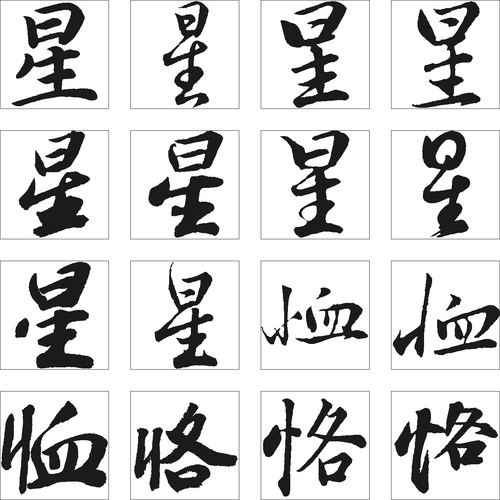 星 星 星 星
星 星 星 星
星 星 恤 恤
恤 恪 恪 恪